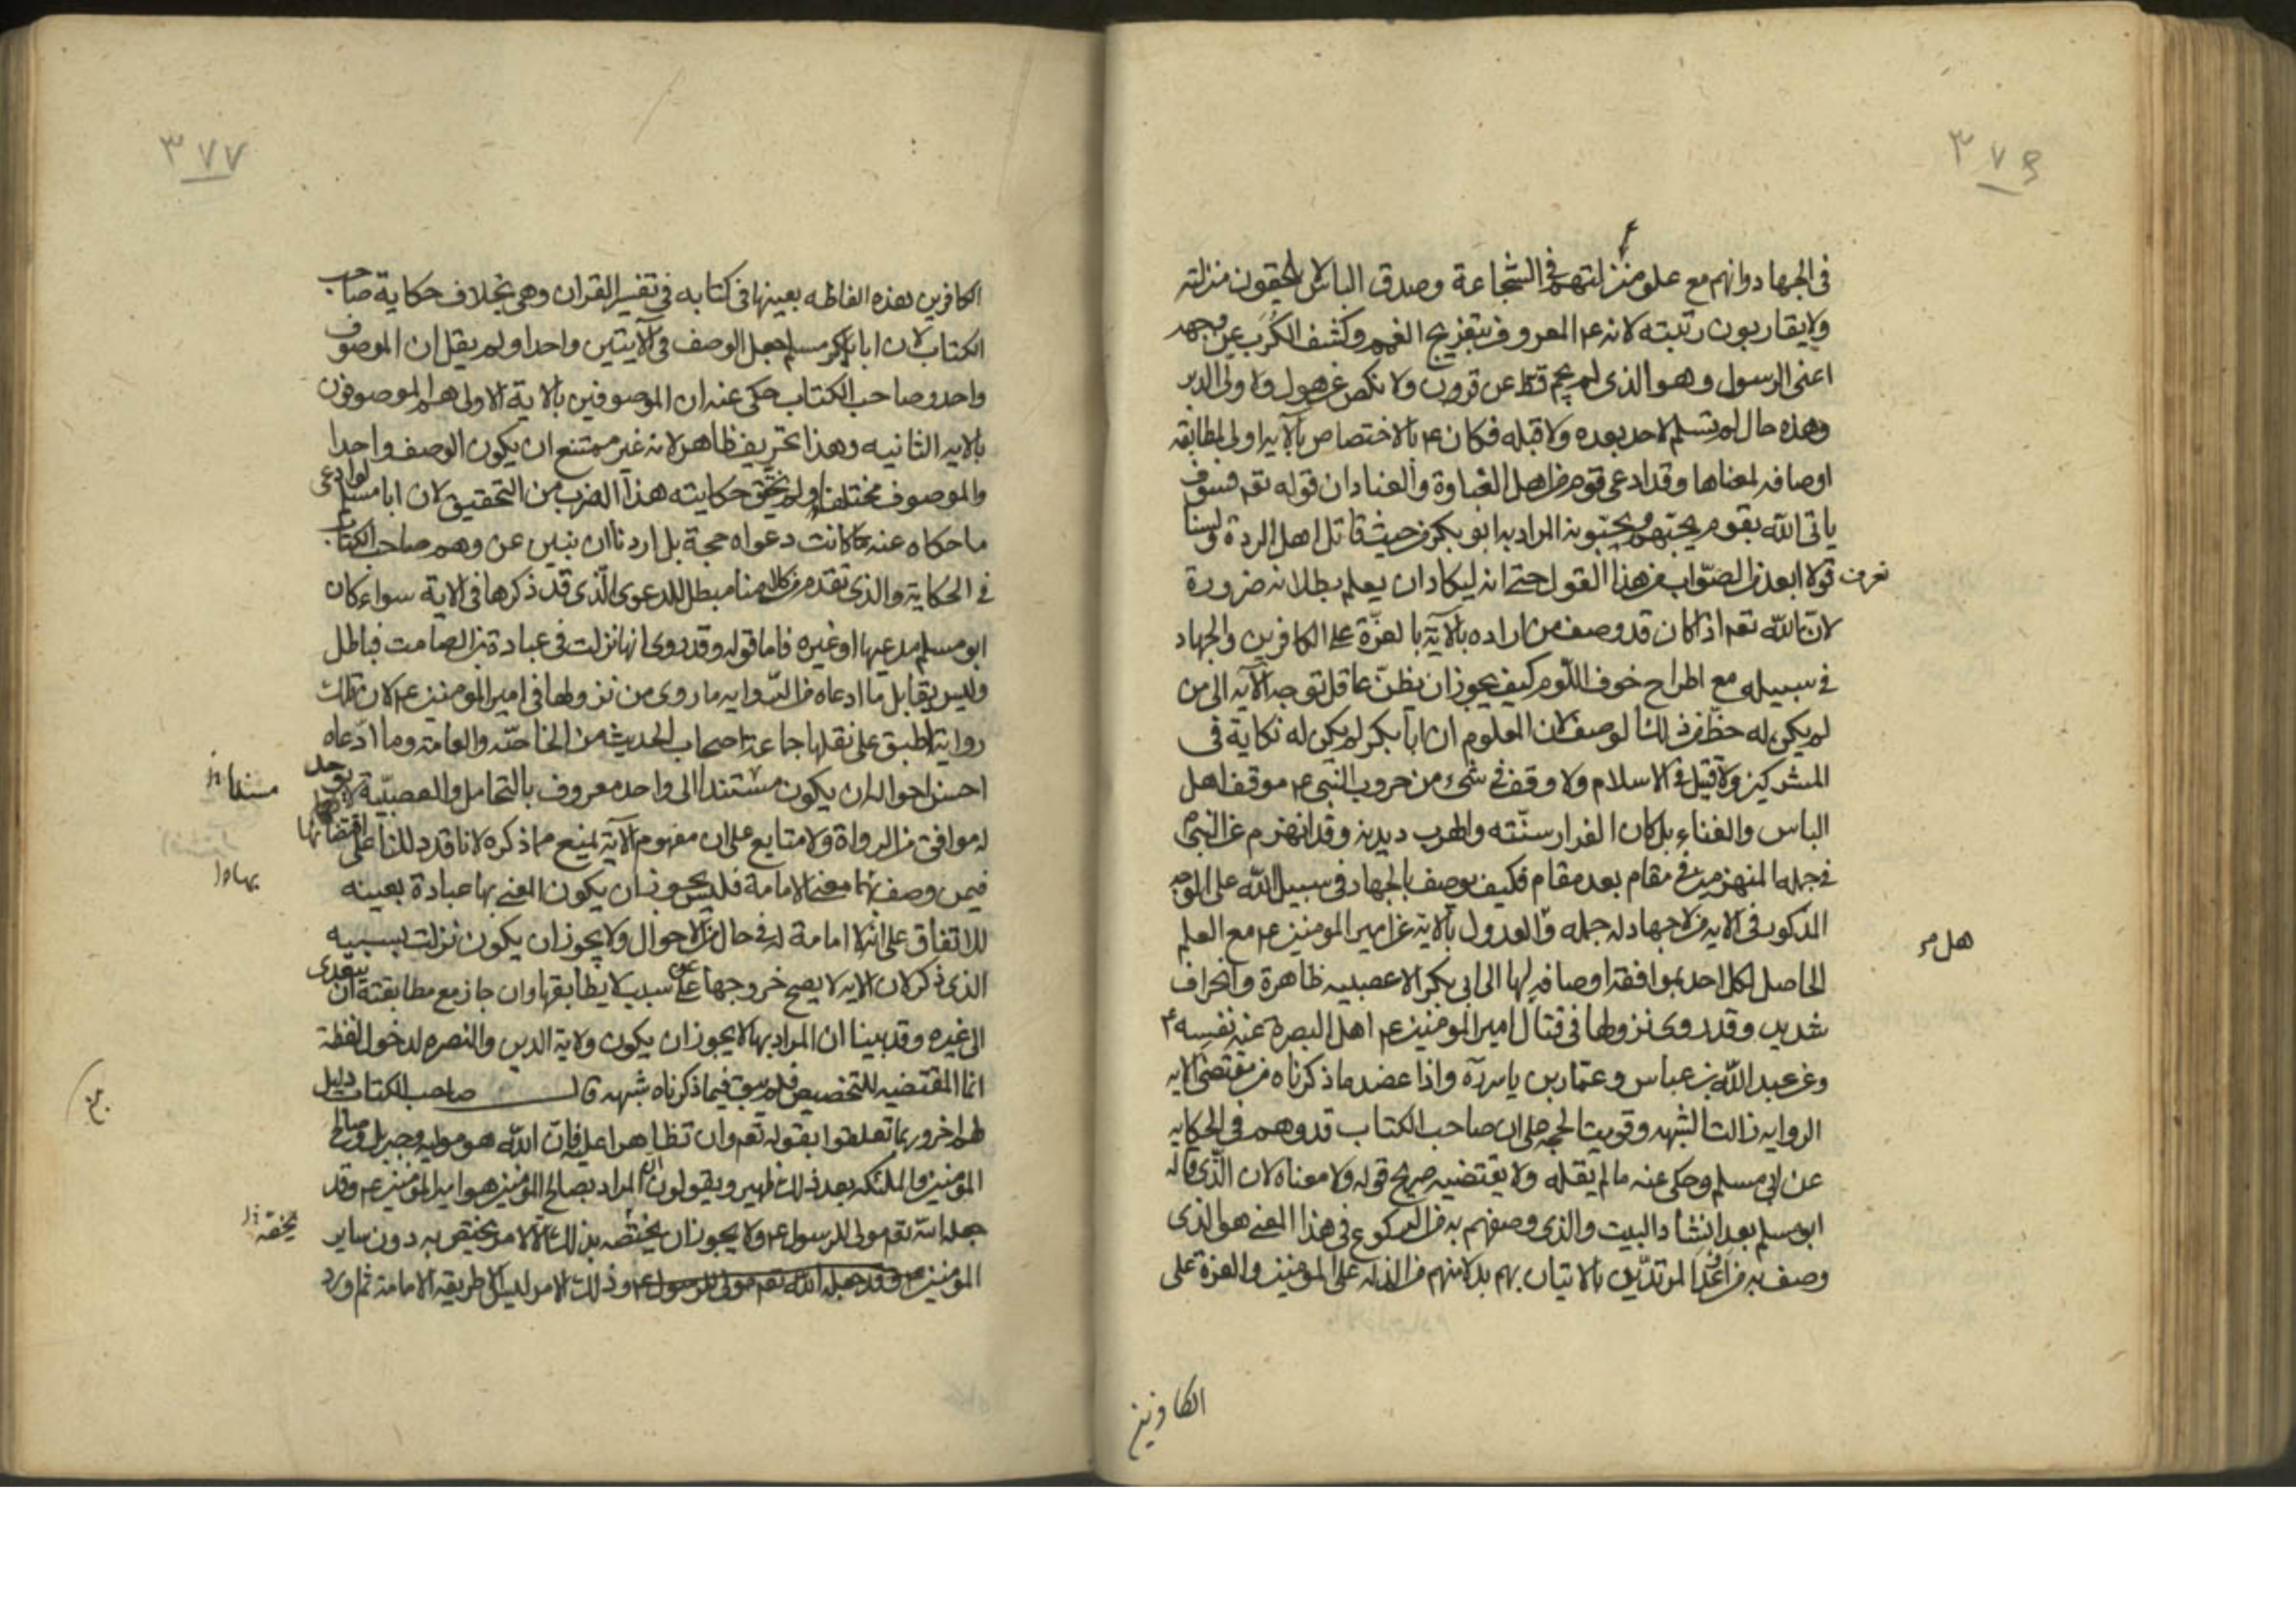 ٣٧٦
في الجهاد وانهم مع علو منزلتهم في الشجاعة وصدق الباس لا يلحقون منزلته
ولا يقاربون رتبته لانه ع المعروف بتفريج الغمم وكشف الكرب عن وجه
اعنى الرسول وهو الذى لم يحجم قط عن قرون ولا نكص عن هول ولا ولى الدبر
وهذه حال لم تسلم لاحد بعده ولا قبله فكان ع بالاختصاص بالآية اولى لمطابقة
اوصافه لمعناها وقد ادعى قوم من اهل الغباوة والعناد ان قوله تعم فسوف
ياتى الله بقوم يحبهم ويحبونه المراد به ابو بكر من حيث قاتل اهل الردة ولسنا
نعرف قولا ابعد من الصواب من هذا القول حتى انه ليكاد ان يعلم بطلانه ضرورة
لان الله تعم اذا كان قد وصف من اراده بالآية بالعزة على الكافرين والجهاد
في سبيله مع اطراح خوف اللوم كيف يجوز ان يظن عاقل توجه الآية الى من
لم يكن له حظ من ذلك الوصف لان المعلوم ان ابا بكر لم يكن له نكاية في
المشركين ولا قتيل في الاسلام ولا وقف في شئ من حروب النبي ع موقف اهل
الباس والغناء بل كان الفرار سنته والهرب ديدنه وقد انهزم عن النبي ص
في جمله المنهزمين في مقام بعد مقام فكيف يوصف بالجهاد في سبيل الله على الوجه
المذكور في الايه من لا جهاد له جمله والعدول بالاية عن امير المومنين ع مع العلم
هل م
الحاصل لكل احد بموافقة اوصافه لها الى ابى بكر الا عصبيه ظاهرة وانحراف
شديد وقد روى نزولها في قتال امير المومنين ع اهل البصرة عنه نفسه ع
وعن عبد الله بن عباس وعمار بن ياسر ره واذا عضد ما ذكرناه من مقتضى الايه
الروايه زالت الشبهه وقويت الحجه على ان صاحب الكتاب قد وهم في الحكايه
عن ابى مسلم وحكى عنه ما لم يقله ولا يقتضيه صريح قوله ولا معناه لان الذى قاله
ابو مسلم بعد انشاد البيت والذى وصفهم به من الركوع في هذا المعنى هو الذى
وصف به من وعد المرتدين بالاتيان بهم بدلا منهم من الذلة على المومنين والعزة على
الكافرين
٣٧٧
الكافرين هذه الفاظه بعينها في كتابه في تفسير القران وهى بخلاف حكاية صاحب
الكتاب لان ابا مسلم جعل الوصف في الآيتين واحدا ولم يقل ان الموصوف
واحد وصاحب الكتاب حكى عنه ان الموصوفين بالاية الاولى هم الموصوفون
بالايه الثانيه وهذا تحريف ظاهر لانه غير ممتنع ان يكون الوصف واحدا
والموصوف مختلفا ولم نحقق حكايته هذا الضرب من التحقيق لان ابا مسلم لو ادعى
ما حكاه عنه لما كانت دعواه حجة بل اردنا ان نبين عن وهم صاحب الكتاب
في الحكاية والذى تقدم من كلامنا مبطل للدعوى الذى قد ذكرها في الاية سواء كان
ابو مسلم مدعيها او غيره فاما قوله وقد روى انها نزلت في عبادة بن الصامت فباطل
وليس يقابل ما ادعاه من الرواية ما روى من نزولها في امير المومنين ع لان تلك
رواية اطبق على نقلها جماعة اصحاب الحديث من الخاصه والعامه وما ادعاه
احسن احواله ان يكون مستندا الى واحد معروف بالتحامل والعصبية لا يوجد
مسندا ن
له موافق من الرواة ولا متابع على ان مفهوم الآية يمنع مما ذكره لانا قد دللنا على اقتضائها
فيمن وصف بها معنى الامامة فليس يجوز ان يكون المعنى بها عبادة بعينه
بها ه ا
للاتفاق على انه لا امامة له في حال من الاحوال ولا يجوز ان يكون نزلت بسببه
الذى ذكر لان الايه لا يصح خروجها على سبب لا يطابقها وان جاز مع مطابقته ان يتعدى
الى غيره وقد بينا ان المراد بها لا يجوز ان يكون ولاية الدين والنصره لدخول لفظة
انما المقتضيه للتخصيص فلم يبق فيما ذكرناه شبهه قال صاحب الكتاب دليل
لهم اخر وربما تعلقوا بقوله تعم وان تظاهرا عليه فان الله هو موليه وجبريل وصالح
المؤمنين والملئكه بعد ذلك ظهير ويقولون المراد بصالح المؤمنين هو امير المومنين ع وقد
جعله الله تعم مولى للرسول ع ولا يجوز ان يختصه بذلك الا لامر يختص به دون ساير
يخصه ن ا
المومنين وقد جعله الله تعم مولى للرسول ع وذلك الامر ليس الا طريقه الامامة ثم اورد